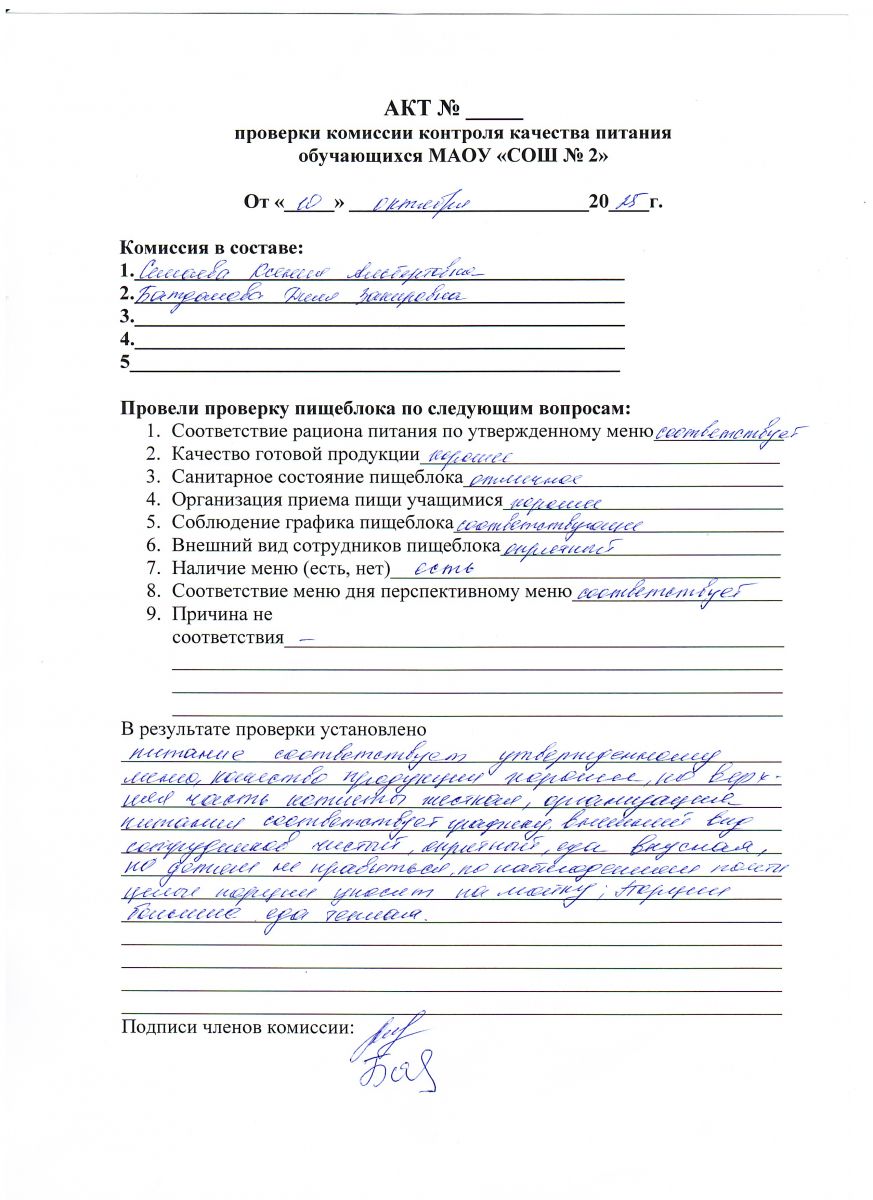 АКТ № _____
проверки комиссии контроля качества питания
обучающихся МАОУ «СОШ № 2»
От « 10 » октября 2025 г.
Комиссия в составе:
1. Ксения Альбертовна
2. Закировна
3.
4.
5
Провели проверку пищеблока по следующим вопросам:
1. Соответствие рациона питания по утвержденному меню соответствует
2. Качество готовой продукции хорошее
3. Санитарное состояние пищеблока отличное
4. Организация приема пищи учащимися хорошее
5. Соблюдение графика пищеблока соответствующее
6. Внешний вид сотрудников пищеблока опрятный
7. Наличие меню (есть, нет) есть
8. Соответствие меню дня перспективному меню соответствует
9. Причина не
соответствия –
В результате проверки установлено
питание соответствует утвержденному
меню, качество продукции хорошее, но верх-
няя часть котлеты жесткая, организация
питания соответствует графику, внешний вид
сотрудников чистый, опрятный, еда вкусная,
но детям не нравиться, по наблюдениям почти
целые порции уносят на мойку; Порции
большие, еда теплая.
Подписи членов комиссии: